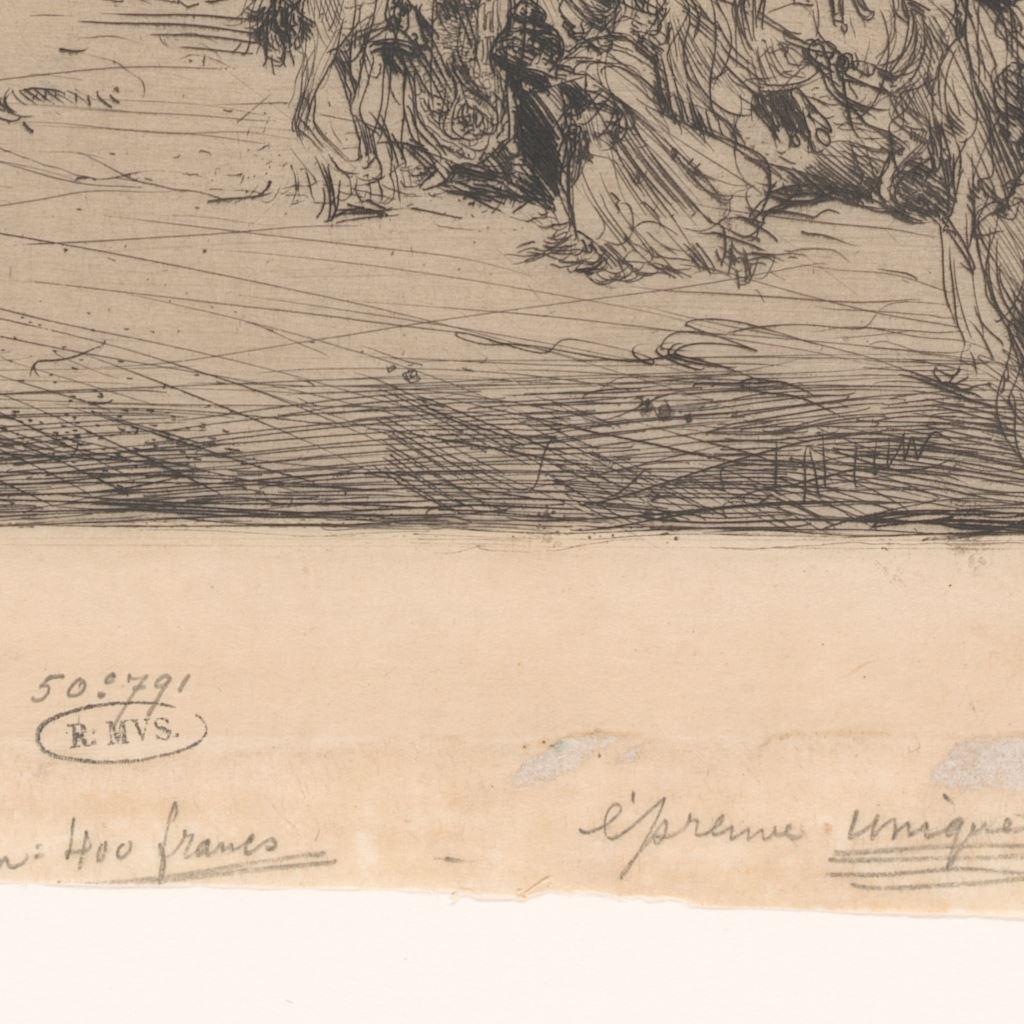 50:791
R: MVS.
: 400 francs - épreuve unique